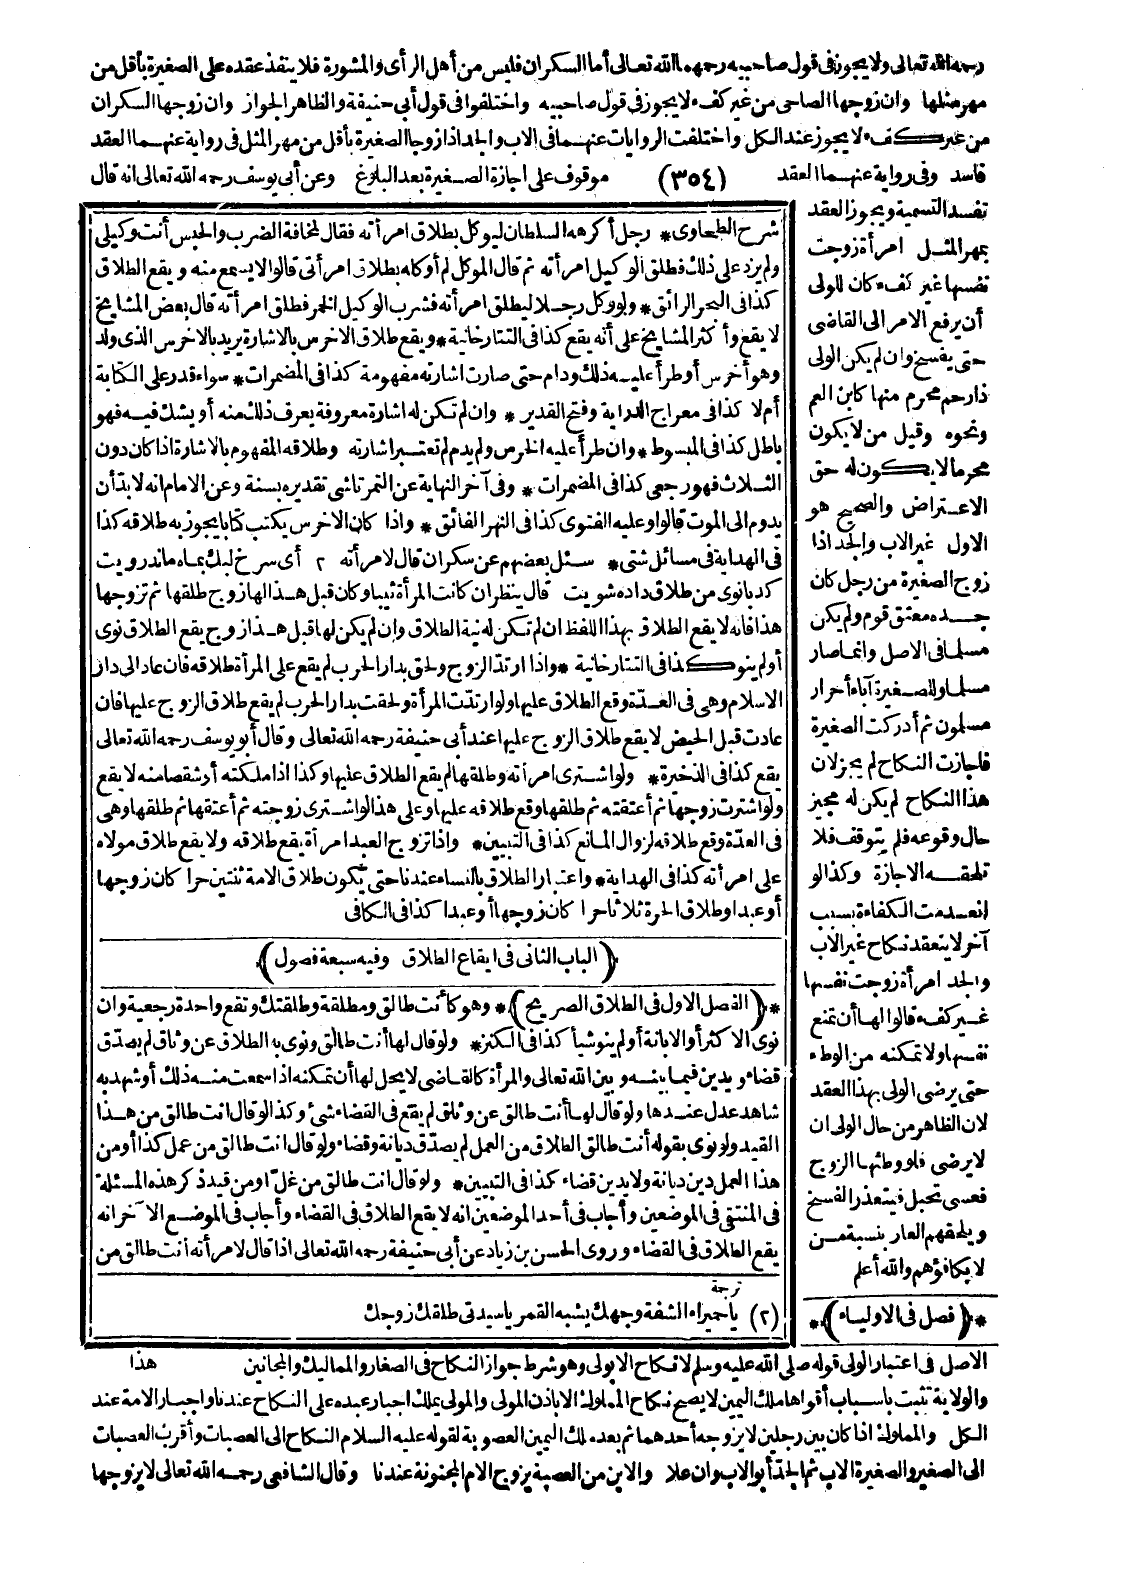 رحمه الله تعالى ولا يجوز فى قول صاحبيه رحمهما الله تعالى أما السكران فليس من أهل الرأى والمشورة فلا ينفذ عقده على الصغيرة بأقل من
مهر مثلها وان زوجها الصاحى من غير كفء لا يجوز فى قول صاحبيه واختلفوا فى قول أبى حنيفة والظاهر الجواز وان زوجها السكران
من غير كفء لا يجوز عند الكل واختلفت الروايات عنهما فى الاب والجد اذا زوجا الصغيرة بأقل من مهر المثل فى رواية عنهما العقد
فاسد وفى رواية عنهما العقد (٣٥٤) موقوف على اجازة الصغيرة بعد البلوغ وعن أبى يوسف رحمه الله تعالى انه قال
تفسد التسمية ويجوز العقد
بمهر المثل امرأة زوجت
نفسها غير كفء كان للولى
أن يرفع الامر الى القاضى
حتى يفسخ وان لم يكن الولى
ذا رحم محرم منها كابن العم
ونحوه وقيل من لا يكون
محرما لا يكون له حق
الاعتراض والصحيح هو
الاول غير الاب والجد اذا
زوج الصغيرة من رجل كان
جده معتق قوم ولم يكن
مسلما فى الاصل وانما صار
مسلما وللصغيرة آباء أحرار
مسلمون ثم أدركت الصغيرة
فاجازت النكاح لم يجز لان
هذا النكاح لم يكن له مجيز
حال وقوعه فلم يتوقف فلا
تلحقه الاجازة وكذا لو
انعدمت الكفاءة بسبب
آخر لا ينعقد نكاح غير الاب
والجد امرأة زوجت نفسها
غير كفء قالوا لها أن تمنع
نفسها ولا تمكنه من الوطء
حتى يرضى الولى بهذا العقد
لان الظاهر من حال الولى ان
لا يرضى فلو وطئها الزوج
فعسى تحبل فيتعذر الفسخ
ويلحقهم العار بنسبة من
لا يكافؤهم والله أعلم
*(فصل فى الاولياء)*
شرح الطحاوى* رجل أكرهه السلطان ليوكل بطلاق امرأته فقال لمخافة الضرب والحبس أنت وكيلى
ولم يزد على ذلك فطلق الوكيل امرأته ثم قال الموكل لم أوكله بطلاق امرأتى قالوا لا يسمع منه ويقع الطلاق
كذا فى البحر الرائق* ولو وكل رجلا ليطلق امرأته فشرب الوكيل الخمر فطلق امرأته قال بعض المشايخ
لا يقع وأكثر المشايخ على أنه يقع كذا فى التتارخانية* ويقع طلاق الاخرس بالاشارة يريد بالاخرس الذى ولد
وهو أخرس أو طرأ عليه ذلك ودام حتى صارت اشارته مفهومة كذا فى المضمرات* سواء قدر على الكتابة
أم لا كذا فى معراج الدراية وفتح القدير* وان لم تكن له اشارة معروفة يعرف ذلك منه أو يشك فيه فهو
باطل كذا فى المبسوط* وان طرأ عليه الخرس ولم يدم لم تعتبر اشارته وطلاقه المفهوم بالاشارة اذا كان دون
الثلاث فهو رجعى كذا فى المضمرات* وفى آخر النهاية عن التمرتاشى تقديره بسنة وعن الامام انه لا بد أن
يدوم الى الموت قالوا وعليه الفتوى كذا فى النهر الفائق* واذا كان الاخرس يكتب كتابا يجوز به طلاقه كذا
فى الهداية فى مسائل شتى* سئل بعضهم عن سكران قال لامرأته ٢ أى سرخ لبك بماه ماند رويت
كد بانوى من طلاق داده شويت قال ينظر ان كانت المرأة ثيبا وكان قبل هذا لها زوج طلقها ثم تزوجها
هذا فانه لا يقع الطلاق بهذا اللفظ ان لم تكن له نية الطلاق وان لم يكن لها قبل هذا زوج يقع الطلاق نوى
أو لم ينو كذا فى التتارخانية* واذا ارتد الزوج ولحق بدار الحرب لم يقع على المرأة طلاقه فان عاد الى دار
الاسلام وهى فى العدة وقع الطلاق عليها ولو ارتدت المرأة ولحقت بدار الحرب لم يقع طلاق الزوج عليها فان
عادت قبل الحيض لا يقع طلاق الزوج عليها عند أبى حنيفة رحمه الله تعالى وقال أبو يوسف رحمه الله تعالى
يقع كذا فى الذخيرة* ولو اشترى امرأته وطلقها لم يقع الطلاق عليها وكذا اذا ملكته أو شقصا منه لا يقع
ولو اشترت زوجها ثم أعتقته ثم طلقها وقع طلاقه عليها وعلى هذا لو اشترى زوجته ثم أعتقها ثم طلقها وهى
فى العدة وقع طلاقه لزوال المانع كذا فى التبيين* واذا تزوج العبد امرأة يقع طلاقه ولا يقع طلاق مولاه
على امرأته كذا فى الهداية* واعتبار الطلاق بالنساء عندنا حتى يكون طلاق الامة ثنتين حرا كان زوجها
أو عبدا وطلاق الحرة ثلاثا حرا كان زوجها أو عبدا كذا فى الكافى
(الباب الثانى فى ايقاع الطلاق وفيه سبعة فصول)
*(الفصل الاول فى الطلاق الصريح)* وهو كأنت طالق ومطلقة وطلقتك وتقع واحدة رجعية وان
نوى الاكثر أو الابانة أو لم ينو شيأ كذا فى الكنز* ولو قال لها أنت طالق ونوى به الطلاق عن وثاق لم يصدق
قضاء ويدين فيما بينه وبين الله تعالى والمرأة كالقاضى لا يحل لها أن تمكنه اذا سمعت منه ذلك أو شهد به
شاهد عدل عندها ولو قال لها أنت طالق عن وثاق لم يقع فى القضاء شئ وكذا لو قال انت طالق من هذا
القيد ولو نوى بقوله أنت طالق الطلاق من العمل لم يصدق ديانة وقضاء ولو قال انت طالق من عمل كذا أو من
هذا العمل دين ديانة ولا يدين قضاء كذا فى التبيين* ولو قال انت طالق من غلّ او من قيد ذكر هذه المسئلة
فى المنتقى فى الموضعين وأجاب فى أحد الموضعين انه لا يقع الطلاق فى القضاء وأجاب فى الموضع الآخر انه
يقع الطلاق فى القضاء وروى الحسن بن زياد عن أبى حنيفة رحمه الله تعالى اذا قال لامرأته أنت طالق من
ترجمة
(٢) يا حميراء الشفة وجهك يشبه القمر يا سيدتى طلقك زوجك
الاصل فى اعتبار الولى قوله صلى الله عليه وسلم لا نكاح الا بولى وهو شرط جواز النكاح فى الصغار والمماليك والمجانين هذا
والولاية تثبت باسباب أقواها ملك اليمين لا يصح نكاح المملوك الا باذن المولى والمولى يملك اجبار عبده على النكاح عندنا واجبار الامة عند
الكل والمملوك اذا كان بين رجلين لا يزوجه أحدهما ثم بعد ملك اليمين العصوبة لقوله عليه السلام النكاح الى العصبات وأقرب العصبات
الى الصغير والصغيرة الاب ثم الجد أبو الاب وان علا والابن من العصبة يزوج الام المجنونة عندنا وقال الشافعى رحمه الله تعالى لا يزوجها